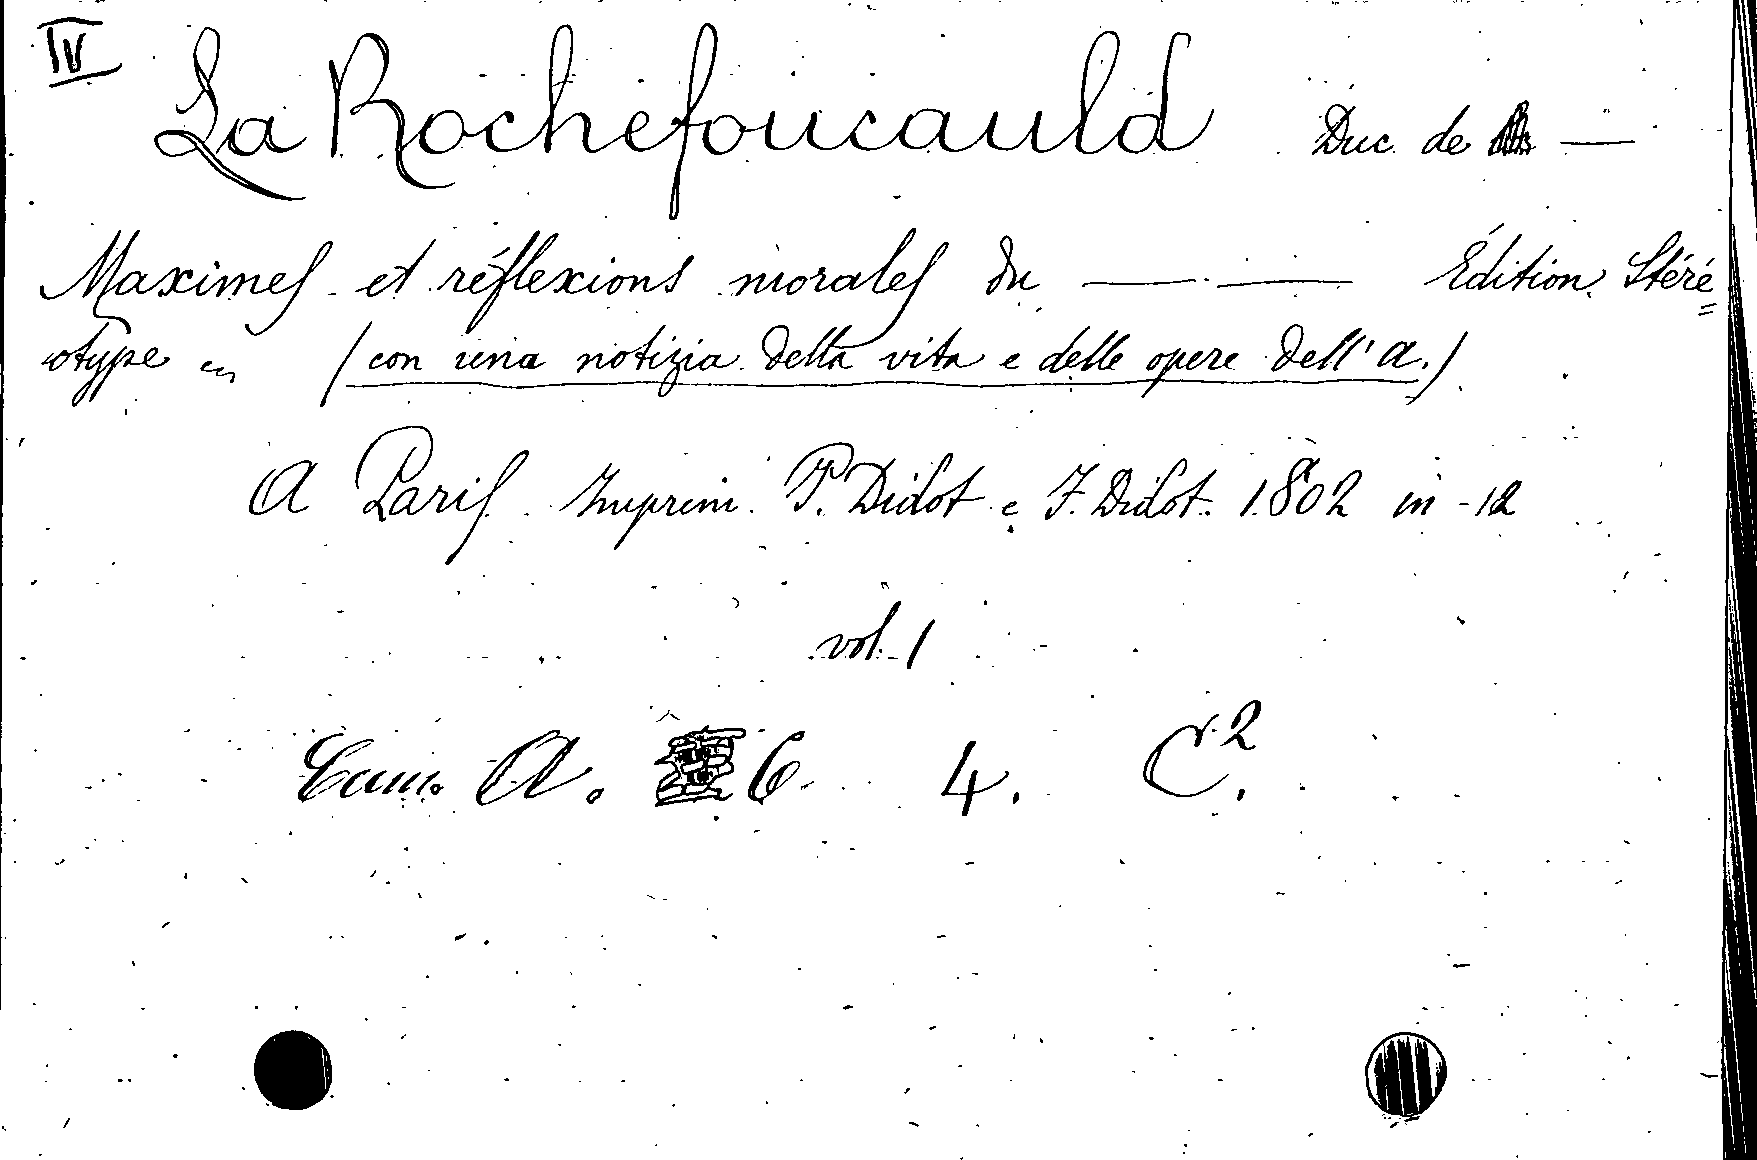 IV
La Rochefoucauld Duc de —
Maximes et réflexions morales du — — Édition Stéré=
otype (con una notizia della vita e delle opere dell'a.)
A Paris Imprim. P. Didot e F. Didot. 1802 in-12
vol. 1
Cam. A. 6 4. C.2